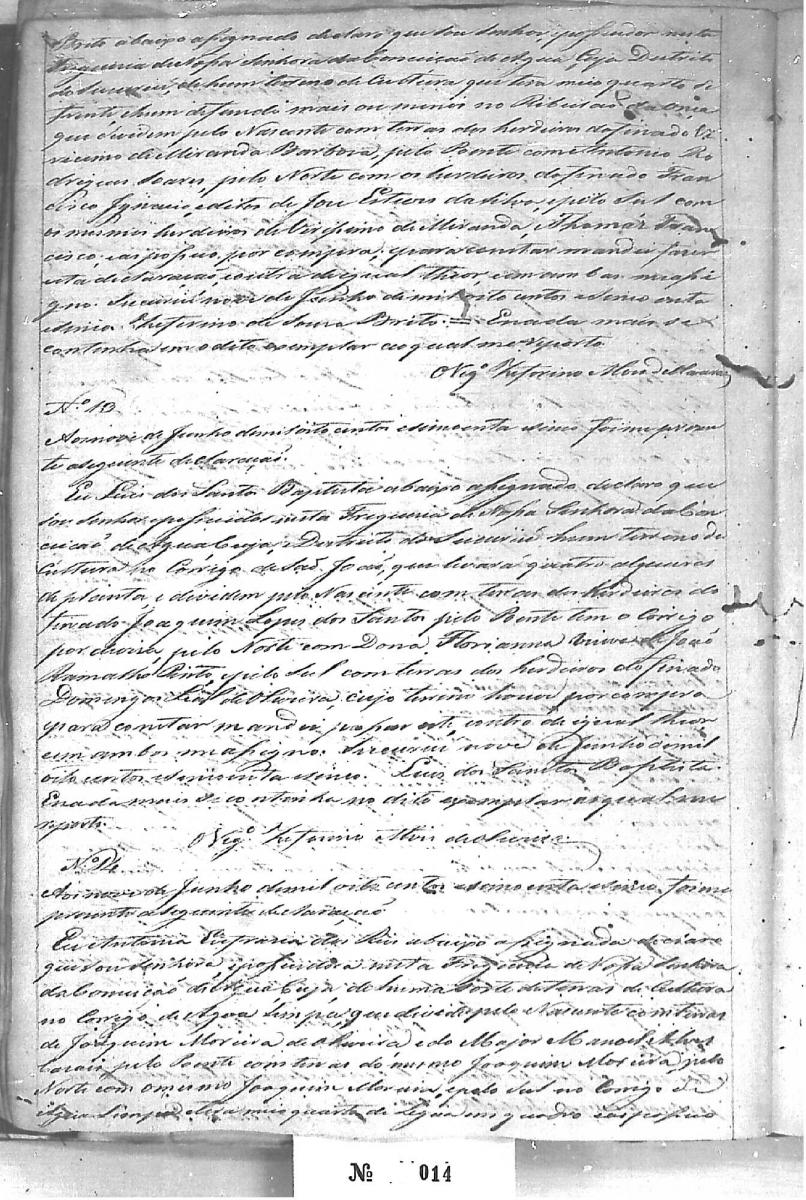 Brito abaixo assignado declaro que sou senhor, e possuidor nesta
Freguesia de Nossa Senhora da Conceição de Agua Suja Destrito
do Sucuriú, de hum terreno de Cultura que tera meio quarto de
frente e hum de fundo mais ou menos no Ribeirão da Onça
que devidem pelo Nascente com terras dos herdeiros do finado Ve
rissimo de Miranda Barbosa, pelo Poente com Antonio Ro
drigues Soares, pelo Norte com os herdeiros do finado Fran
cisco Ignacio, e ditos de José Esteves da Silva, e pelo Sul com
os mesmos herdeiros de Virissimo de Miranda, e Thomáz Fran
cisco, e as possuo, por compra, e para constar mandei fazer
esta declaração, e outra de igual theor, e em ambas me assi
gno. Sucuriú nove de Junho de mil oito centos e sincoenta
e sinco. Zeferino de Souza Brito. = E nada mais se
continha em o dito exemplar ao qual me reporto
O Vigº Zeferino
Nº 13
Aos nove de Junho de mil oito centos e sincoenta e sinco foi me prezen
te a seguinte declaração.
Eu Luis dos Santos Baptista abaixo assignado, declaro que
sou senhor, e possuidor nesta Freguesia de Nossa Senhora da Con
ceicaõ de Agua Çuja, e Destrito do Sucuriú hum terreno de
Cultura no Corrigo de Saõ João, que levará quatro alqueires
de planta e devidem pelo Nascente com terras dos herdeiros do
finado Joaquim Lopes dos Santos pelo Poente tem o Corrigo
por devisa, pelo Norte com Dona Florianna Viuva de João
Ramalho Pinto, e pelo Sul com terras dos herdeiros do finado
Domingos Leal de Oliveira, cujo terreno houve por compra
e para constar mandei passar este, e outro de igual theor
e em ambos me assigno. Sucuriú nove de Junho de mil
oito centos e sincoenta e sinco. Luis dos Santos Baptista.
E nada mais se continha no dito exemplar ao qual me
reporto.
O Vigº Zeferino Alves de
Nº 14
Aos nove de Junho de mil oito centos e sincoenta e sinco, foi me
prezente a seguinte declaração
Eu Antonia dos Reis abaixo assignada declaro
que sou senhora, e possuidora nesta Freguesia de Nossa Senhora
da Conceição de Agua Çuja, de huma Sorte de terras de Cultura
no Corrigo de Agoa Limpa, que devide pelo Nascente com terras
de Joaquim Moreira de Oliveira e do Major Manoel Alves
pelo Poente com terras do mesmo Joaquim Moreira, pelo
Norte com o mesmo Joaquim Moreira, e pelo Sul no Corrigo de
Agua Limpa e tera meio quarto de legua em quadro e as possuo
Nº 014